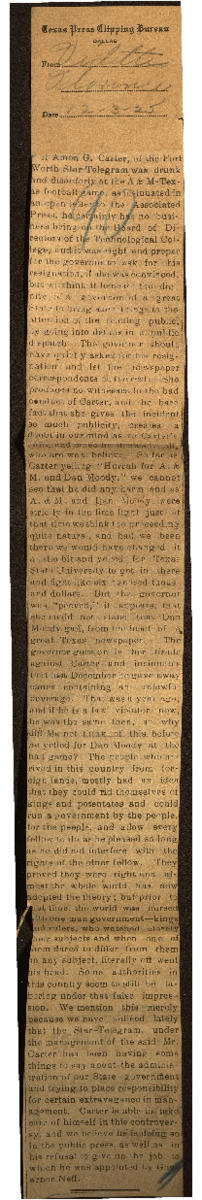 Texas Press Clipping Bureau
DALLAS
From
Date 12-3-25
If Amon G. Carter, of the Fort
Worth Star-Telegram was drunk
and disorderly at the A & M-Tex-
as football game, as insinuated in
an open letter to the Associated
Press, he certainly has no busi-
ness being on the Board of Di-
rectors of the Technological Col-
lege, and it was right and proper
for the governor to ask for his
resignation, if she was convinced,
but we think it beneath the dig-
nity of a governor of a great
State to bring such things to the
attention of the reading public,
by going into details in a public
dispatch. The governor should
have quietly asked for the resig-
nation and let the newspaper
correspondents do the rest. She
produced no witnesses to the bad
conduct of Carter, and the bare
fact that she gives the incident
so much publicity, creates a
doubt in our mind as to Carter's
who are we to believe. So far as
Carter yelling "Hurrah for A. &
M. and Dan Moody," we cannot
see that he did any harm and as
A. & M. and Dan Moody were
strictly in the lime light just at
that time we think the proceeding
quite natural, and had we been
there we would have changed it
a little bit and yelled for Texas
State University to get in there
and fight like six hundred thous-
and dollars. But the governor
was "peeved," it appears, that
she could not stand that Dan
Moody yell, from the head of a
great Texas newspaper. The
governor goes on in her tirade
against Carter and insinuates
that last December he gave away
canes containing an unlawful
beverage. That was a year ago,
and if he is a law violator now,
he was the same then, so why
did Ma not think of this before
he yelled for Dan Moody at the
ball game? The people who ar-
rived in this country from for-
eign lands, mostly had an idea
that they could rid themselves of
kings and potentates and could
run a government by the people,
for the people, and allow every
fellow to do as he pleased so long
as he did not interfere with the
rights of the other fellow. They
proved they were right and al-
most the whole world has now
adopted the theory; but prior to
that time the world was cursed
with one man government—kings
and rulers, who watched closely
their subjects and when one of
them dared to differ from them
on any subject, literally off went
his head. Some authorities in
this country seem to still be la-
boring under that false impres-
sion. We mention this merely
because we have noticed lately
that the Star-Telegram, under
the management of the said Mr.
Carter has been having some
things to say about the adminis-
tration of our State government
and trying to place responsibility
for certain extravagance in man-
agement. Carter is able to take
care of himself in this controver-
sy, and we believe in
the public press, as well as in
his refusal to give up the job to
which he was appointed by Gov-
ernor Neff.